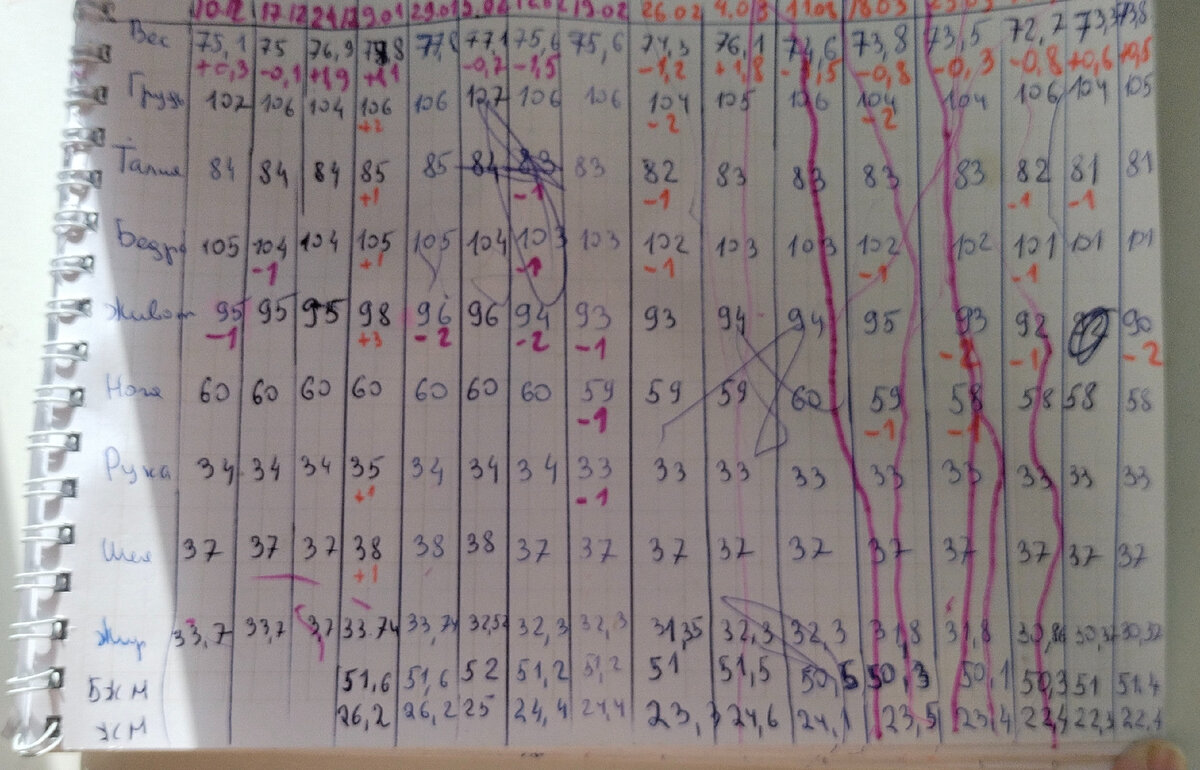 10.12 17.12 24.12 9.01 29.01 19.02 26.02 4.03 11.03 18.03
Вес 75,1 75 76,9 77,1 75,6 75,6 74,3 76,1 74,6 73,8 73,5 72,7
+0,3 -0,1 +1,9 +1,1 -0,7 -1,5 -1,2 +1,8 -1,5 -0,8 -0,3 -0,8 +0,6 +0,5
Грудь 107 106 104 106 106 107 106 106 104 105 106 104 104 106 104 105
-2 -2
Талия 84 84 84 85 85 84 83 83 82 83 83 83 83 82 81 81
+1 -1 -1 -1 -1
Бедра 105 104 104 105 105 104 103 103 102 103 103 102 102 101 101 101
-1 +1 -1 -1 -1 -1
Живот 95 95 95 98 96 96 94 93 93 94 94 95 93 92 90
-1 +3 -2 -2 -1 -2 -1 -2
Нога 60 60 60 60 60 60 60 59 59 59 60 59 58 58 58 58
-1 -1 -1
Рука 34 34 34 35 34 34 34 33 33 33 33 33 33 33 33 33
+1 -1
Шея 37 37 37 38 38 38 37 37 37 37 37 37 37 37 37 37
+1
Жир 33,7 33,7 33.74 33,74 32,52 32,3 32,3 31,35 32,3 32,3 31,8 31,8
БЖМ 51,6 51,6 52 51,2 51,2 51 51,5 50,5 50,3 50,1 50,3 51 51,4
ЖМ 26,2 26,2 25 24,4 24,4 23,3 24,6 24,1 23,5 23,4 22,4